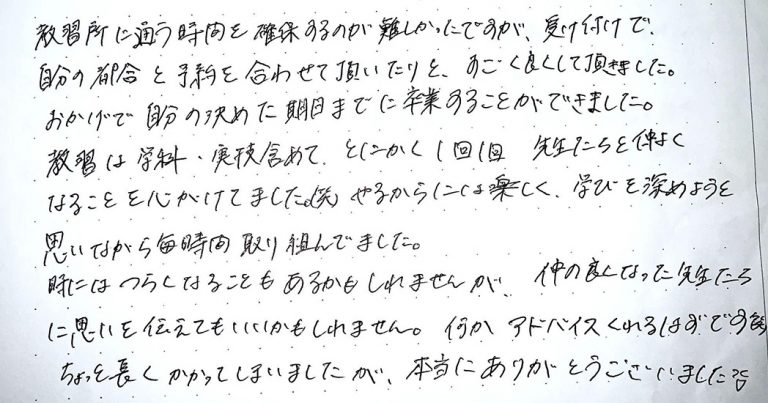 教習所に通う時間を確保するのが難しかったですが、受け付けで、
自分の都合と予約を合わせて頂いたりと、すごく良くして頂きました。
おかげで自分の決めた期日までに卒業することができました。
教習は学科・実技含めて、とにかく1回1回 先生たちと仲よく
なることを心がけてました。(笑) やるからには楽しく、学びを深めようと
思いながら毎時間取り組んでました。
時にはつらくなることもあるかもしれませんが、仲の良くなった先生たち
に思いを伝えてもいいかもしれません。何かアドバイスくれるはずです
ちょっと長くかかってしまいましたが、本当にありがとうございました